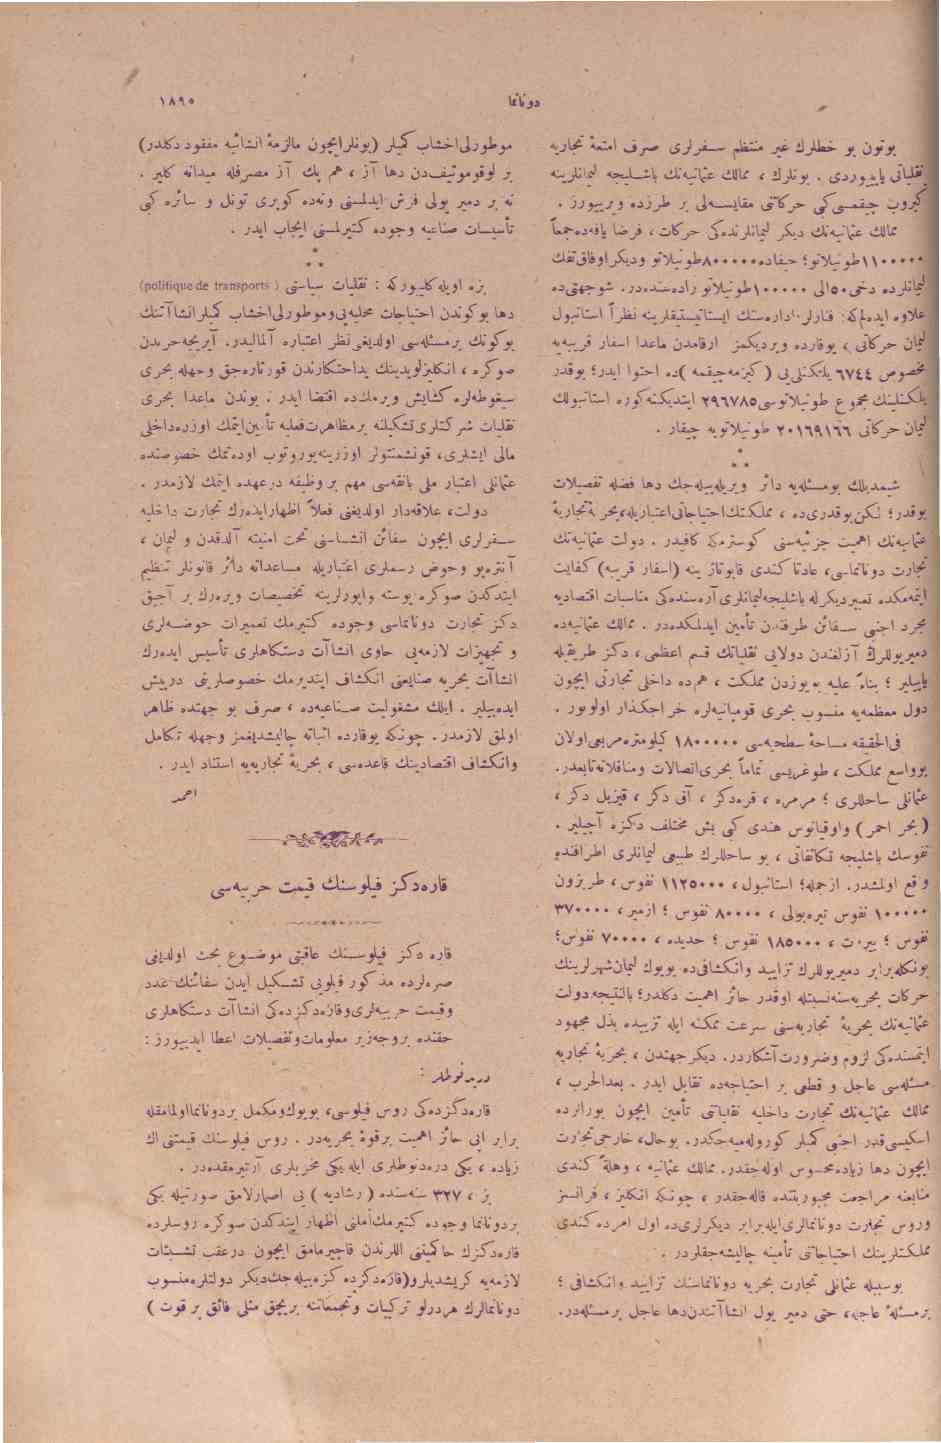 دوناما
١٨٩٥
بوتون بو خطلرك غير منتظم سفرلرى صرف امتعهٔ تجاريه
نقلياتى ياپيوردى . بونلرك ، ممالك عثمانيه‌نك باشليجه ليمانلرينه
كيروب چيقمسى كبى حركاتى مقايسه‌لى بر طرزده ويرييورز .
ممالك عثمانيه‌نك ديكر ليمانلرنده‌كى حركات ، فرضا يافه‌ده جمعاً
١١٠٠٠٠٠ طونيلاتو ؛ حيفاده ٨٠٠٠٠٠ طونيلاتو وديكر اوفاق تفك
ليمانلرده دخى ٥٠ الى ١٠٠٠٠٠ طونيلاتو راده‌سنده‌در. شوجهتى‌ده
علاوه ايده‌لم‌كه : فنارلر اداره‌سنك ايستاتيستيقلرينه نظراً استانبول
ليمان حركاتى ، يوقارده ويرديكمز ارقامدن ماعدا اسفار قريبه‌يه
مخصوص ٦٧٤٤ يلكنلى‌يى ( كيرمه چيقمه ) ده احتوا ايدر ؛ بوقدر
يلكنلينك مجموع طونيلاتوسى ٢٩٦٧٨٥ ايتديكنه كوره استانبولك
ليمان حركاتى ٢٠١٦٩١٦٦ طونيلاتويه چيقار .
*
* *
شيمديلك بومسئله‌يه دائر ويريله‌بيله‌جك دها فضله تفصيلات
يوقدر ؛ لكن بوقدرى‌ده ، مملكتك احتياجاتى اعتباريله ، بحريهٔ تجاريهٔ
عثمانيه‌نك اهميت جزئيه‌سنى كوسترمكه كافيدر . دولت عثمانيه‌نك
تجارت دونانماسى ، عادتا كندى قابوتاژينه (اسفار قريبه) كفايت
ايتمه‌مكده تعبير ديكرله باشليجه ليمانلرى آره‌سنده‌كى مناسبات اقتصاديه
مجرد اجنبى سفائن طرفندن تأمين ايدلمكده‌در . ممالك عثمانيه‌ده
دميريوللرك آزلغندن دولايى نقلياتك قسم اعظمى ، دكز طريقيله
ياپيلير ؛ بناءً عليه بو يوزدن مملكت ، هم‌ده داخلى تجارتى ايچون
دول معظمه‌يه منسوب بحرى قومپانيه‌لره خراجكذار اولويور .
فى‌الحقيقه مساحهٔ سطحيه‌سى ١٨٠٠٠٠٠ كيلومتره مربعى اولان
بو واسع مملكت ، طوغريسى تماماً بحرى اتصالات ومناقلاته تابعدر.
عثمانلى ساحللرى ؛ مرمره ، قره‌دكز ، آق دكز ، قيزيل دكز ،
( بحر احمر ) واوقيانوس هندى كبى بش مختلف دكزه آچيلير .
نفوسك باشليجه تكاثفاتى ، بو ساحللرك طبيعى ليمانلرى اطرافنده
واقع اولمشدر. ازجمله ؛ استانبول ، ١١٢٥٠٠٠ نفوس ، طربزون
١٠٠٠٠٠ نفوس تيره‌بولى ، ٨٠٠٠٠ نفوس ؛ ازمير ، ٣٧٠٠٠٠
نفوس ؛ بيروت ، ١٨٥٠٠٠ نفوس ؛ حديده ، ٧٠٠٠٠ نفوس ؛
بونكله برابر دميريوللرك تزاييد وانكشافى‌ده بويوك ليمان شهرلرينك
حركات بحريه‌سنه نسبتله اوقدر حائز اهميت دكلدر ؛ بالنتيجه دولت
عثمانيه‌نك بحريهٔ تجاريه‌سنى سرعت ممكنه ايله تزييده بذل مجهود
ايتمسنده‌كى لزوم وضرورت آشكاردر. ديكر جهتدن ، بحريهٔ تجاريه
مسئله‌سى عاجل و قطعى بر احتياجه‌ده تقابل ايدر . بعدالحرب ،
ممالك عثمانيه‌نك تجارت داخليه نقلياتى تأمين ايچون بورالرده
اسكيسى قدر اجنبى كميلر كوروله‌ميه‌جكدر. بوحال ، خارجى تجارت
ايچون دها زياده محسوس اوله‌جقدر. ممالك عثمانيه ، وهلهٔ كندى
منابعنه مراجعت مجبوريتنده قاله‌جقدر ، چونكه انكليز ، فرانسز
وروس تجارت دونانمالرى ايله برابر ديكرلرى‌ده اول امرده كندى
مملكتلرينك احتياجاتى تأمينه چاليشه‌جقلردر .
بوسببله عثمانلى تجارت بحريه دونانماسنك تزاييد وانكشافى ؛
برمسئلهٔ عاجله ، حتى دمير يول انشاآتندن دها عاجل برمسئله‌در.
موطورلى اخشاب كميلر (بونلر ايچون مالزمهٔ انشائيه مفقود دكلدر)
بر لوقوموتيفدن دها آز ، هم پك آز مصرفله ميدانه كلير .
نه بر دمير يولى فرش ايدلمسنى ونه‌ده كوپرى تونل و سائره كبى
تأسيسات صناعيه وجوده كتيرلمسنى ايجاب ايدر .
*
* *
بزه اويله كلييوركه : نقليات سياستى (politique de transports)
دها بوكوندن احتياجات محليه‌يى وموطورلى اخشاب كميلر انشاآتنك
بوكونك برمسئله‌سى اولديغى نظر اعتباره آلماليدر. آيريجه حربدن
صوكره ، انكليز لويدينك يداحتكارندن قورتاره‌جق وجهله بحرى
سيغورطه‌لره كشايش ويرمك‌ده اقتضا ايدر . بوندن ماعدا بحرى
نقليات شركتلرى تشكيلنه برمظاهرت فعليه تأمين ايتمك اوزره داخلى
مالى ايشلرى ، قونشمنتولر اوزرينه يوروتوب اوده‌تمك خصوصنده
عثمانلى اعتبار ملى بانقه‌سى مهم بر وظيفه درعهده ايتمك لازمدر .
دولت ، علاقه‌دار اولديغنى فعلاً اظهار ايده‌رك تجارت داخليه
سفرلرى ايچون سفائن انشاسنى تحت امنيته آلدقدن و ليمان ،
آنتره‌پو وحوض رسملرى اعتباريله مساعداته دائر قانونلر تنظيم
ايتدكدن صوكره پوسته واپورلرينه تخصيصات ويره‌رك بر آچيق
دكز تجارت دونانماسى وجوده كتيرمك تعميرات حوضه‌لرى
و تجهيزات لازمه‌يى حاوى انشاآت دستكاهلرى تأسيس ايده‌رك
انشاآت بحريه صنايعنى انكشاف ايتديرمك خصوصلرينى درپيش
ايده‌بيلير . ايلك مشغوليت صناعيه‌ده ، صرف بو جهتده ظاهر
اولمق لازمدر. چونكه يوقارده اثباته چاليشديغمز وجهله تكامل
وانكشاف اقتصادينك قاعده‌سى ، بحريهٔ تجاريه‌يه استناد ايدر .
احمد
قاره‌دكز فيلوسنك قيمت حربيه‌سى
قاره دكز فيلوسنك عاقبتى موضوع بحث اولديغى
صره‌لرده مذكور فيلويى تشكيل ايدن سفائنك عدد
وقيمت حربيه‌لرى وقاره‌دكزده‌كى انشاآت دستكاهلرى
حقنده بروجه زير معلومات وتفصيلات اعطا ايدييورز :
دره‌دنوطلر :
قاره‌دكزده‌كى روس فيلوسى ، بويوك ومكمل بردونانما اولمامقله
برابر ايى حائز اهميت برقوهٔ بحريه‌در . روس فيلوسنك قيمتنى اك
زياده ، يكى دره‌دنوطلرى ايله يكى مخربلرى آرتيرمقده‌در .
بز ، ٣٢٧ سنه‌سنده ( رشاديه ) يى اصمارلامق صورتيله يكى
بردونانما وجوده كتيرمك املنى اظهار ايتدكدن سوكره روسلرده
قاره‌دكزك حاكميتنى اللرندن قاچيرمامق ايچون درعقب تشبثات
لازمه‌يه كريشديلر و(قاره‌دكزده كزه‌بيله‌جك ديكر دولتلره منسوب
دونانمالرك هردرلو تركيبات وتجمعاتنه بربچق مثلى فائق برقوت )